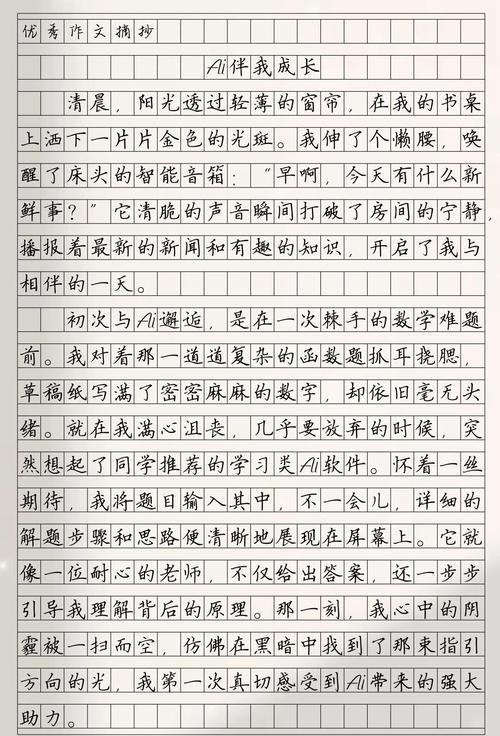 优秀作文摘抄
Ai伴我成长
清晨，阳光透过轻薄的窗帘，在我的书桌
上洒下一片片金色的光斑。我伸了个懒腰，唤
醒了床头的智能音箱：“早啊，今天有什么新
鲜事？”它清脆的声音瞬间打破了房间的宁静，
播报着最新的新闻和有趣的知识，开启了我与
相伴的一天。
初次与Ai邂逅，是在一次棘手的数学难题
前。我对着那一道道复杂的函数题抓耳挠腮，
草稿纸写满了密密麻麻的数字，却依旧毫无头
绪。就在我满心沮丧，几乎要放弃的时候，突
然想起了同学推荐的学习类Ai软件。怀着一丝
期待，我将题目输入其中，不一会儿，详细的
解题步骤和思路便清晰地展现在屏幕上。它就
像一位耐心的老师，不仅给出答案，还一步步
引导我理解背后的原理。那一刻，我心中的阴
霾被一扫而空，仿佛在黑暗中找到了那束指引
方向的光，我第一次真切感受到Ai带来的强大
助力。